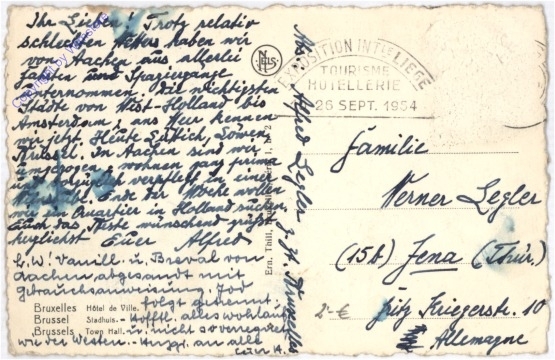 Ihr Lieben! Trotz relativ
schlechten Wetters haben wir
von Aachen aus allerlei
Fahrten und Spaziergänge
unternommen, die wichtigsten
Städte von West-Holland bis
Amsterdam u. ans Meer kennen
wir jetzt. Heute Lüttich, Löwen,
Brüssel. In Aachen sind wir
umgezogen u. wohnen ganz prima
und verpflegt in einer
Ende der Woche wollen
wir ein Quartier in Holland suchen.
Euch das Beste wünschend grüßt
herzlichst Euer Alfred
L. W.! Vanill- u. von
Aachen abgesandt mit
Gebrauchsanweisung, Jod
folgt getrennt.
Hofftl. alles wohlauf
u. nicht so verregnet
wie der Westen. an alle
Euer A.
Bruxelles Hôtel de Ville.
Brussel Stadhuis.
Brussels Town Hall.
Ern. Thill, Bruxelles
NELS
Abs. Alfred Legler z. Zt. Bruxelles
EXPOSITION INTLE LIEGE
TOURISME
HOTELLERIE
26 SEPT. 1954
Familie
Werner Legler
(15b) Jena (Thür.)
Fritz Kriegerstr. 10
Allemagne
2-€
Copyright by